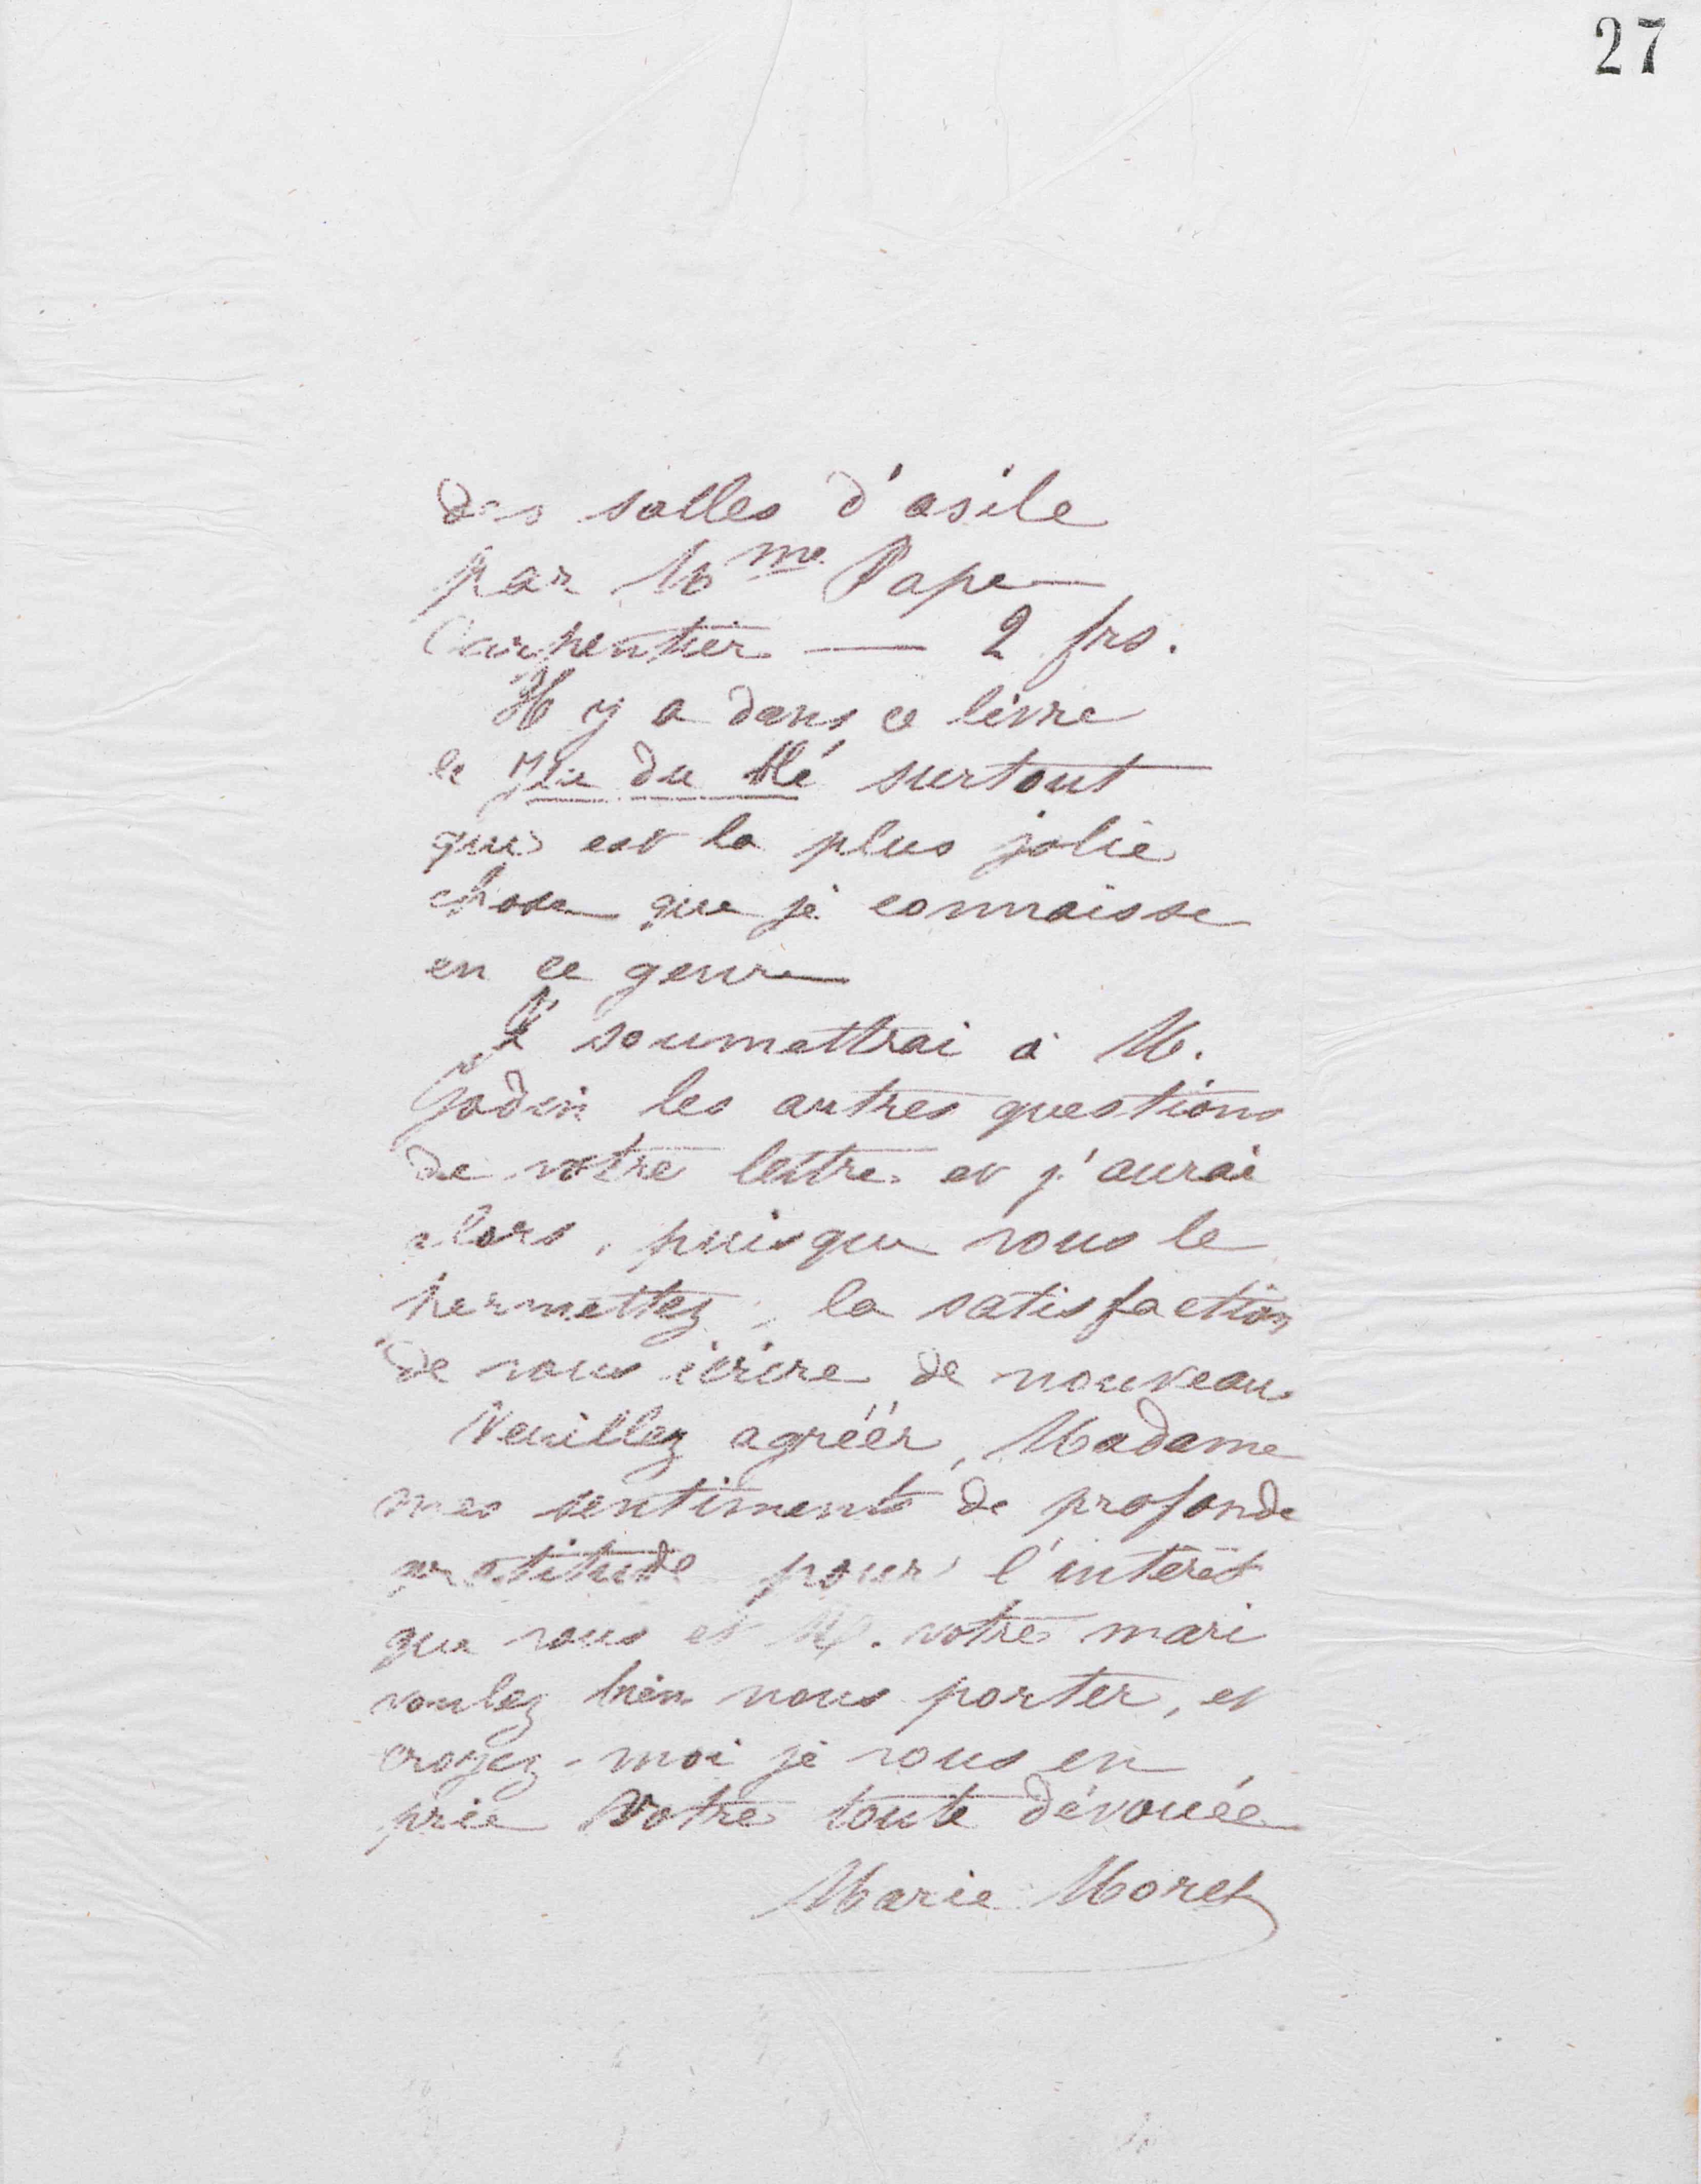 27
des salles d'asile
par Mme Pape
Carpentier — 2 frs.
Il y a dans ce livre
le Jeu du blé surtout
qui est la plus jolie
chose que je connaisse
en ce genre
Je soumettrai à M.
Godin les autres questions
de votre lettre et j'aurai
alors, puisque vous le
permettez, la satisfaction
de vous écrire de nouveau
Veuillez agréér, Madame
mes sentiments de profonde
gratitude pour l'intérêt
que vous et M. votre mari
voulez bien nous porter, et
croyez-moi je vous en
prie Votre toute dévouée
Marie Moret